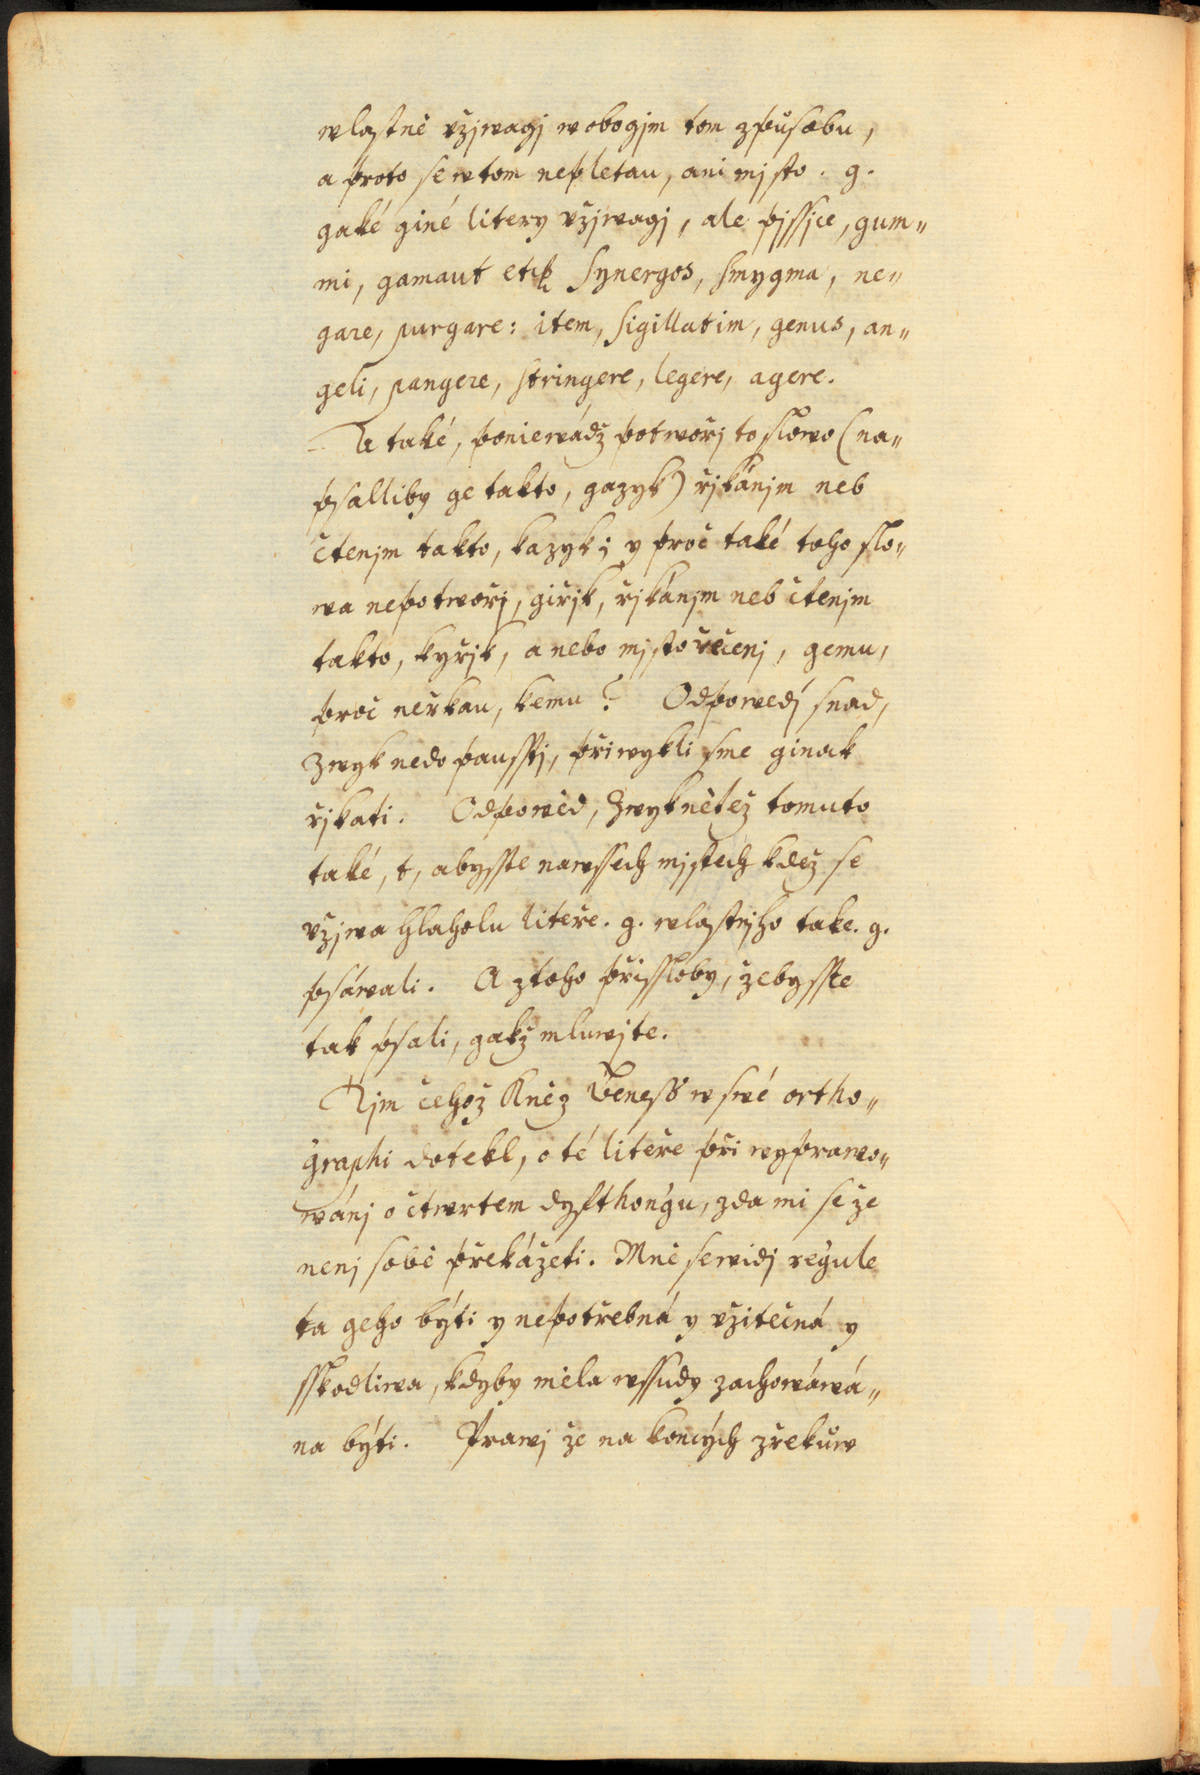 wlastně vžjwagj w obogjm tom zpuosobu,
a proto se w tom nepletau, ani mjsto . g.
gaké giné litery vžjwagj, ale pjssjce, gum„
mi, gamaut etc. Synergos, smygma, ne„
gare, purgare: item, sigillatim, genus, an„
geli, pangere, stringere, legere, agere.
A také, poniewádž potworj to slowo (na„
psalliby ge takto, gazyk) řjkánjm neb
čtenjm takto, kazyk; y proč také toho slo„
wa nepotworj, giřjk, řjkánjm neb čtenjm
takto, kyřjk, a nebo mjsto řečenj, gemu,
proč neřkau, kemu? Odpowědj snad,
Zwyk nedopausstj, přiwykli sme ginak
řjkati. Odpowěd, Zwyknětež tomuto
také, t, abysste na wssech mjstech kdež se
vžjwa hlaholu liteře . g. wlastnjho také . g.
psáwali. A z toho přissloby, žebysste
tak psali, gakž mluwjte.
Tjm čehož Kněz Beness w swé ortho„
graphi dotekl, o té liteře při wyprawo„
wánj o čtwrtem dyfthongu, zda mi se že
nenj sobě překážeti. Mně se widj regule
ta geho býti y nepotřebná y vžitečná y
sskodliwa, kdyby měla wssudy zachowáwá„
na býti. Prawj že na koncých zřekuow